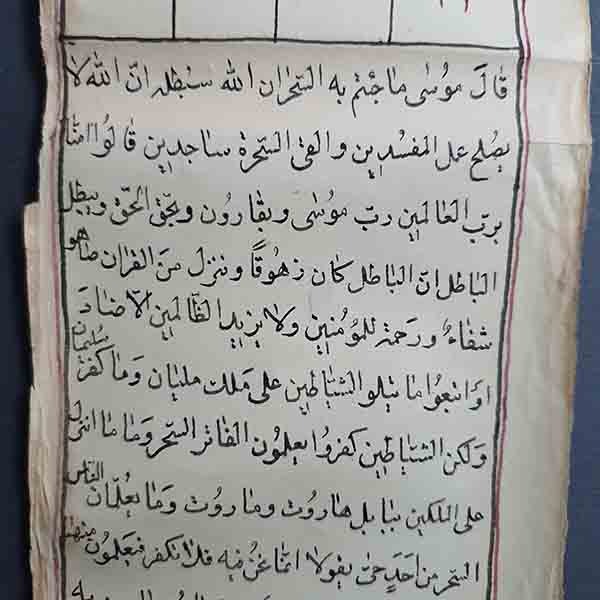 قال موسى ما جئتم به السحران الله سيبطله ان الله لا
يصلح عمل المفسدين والقى السحرة ساجدين قالوا امنا
برب العالمين رب موسى وبقارون ويحق الحق ويبطل
الباطل ان الباطل كان زهوقا وننزل من القران ما هو
شفاء ورحمة للمؤمنين ولا يزيد الظالمين الا
ما يتلو الشياطين على ملك سليمان وما كفر سليمان
ولكن الشياطين كفروا يعلمون السحر وما ما انزل
على الملكين ببابل هاروت وماروت وما يعلمان الناس
السحر من احد حتى يقولا انما نحن فيه فلا تكفر فيعلمون منهما